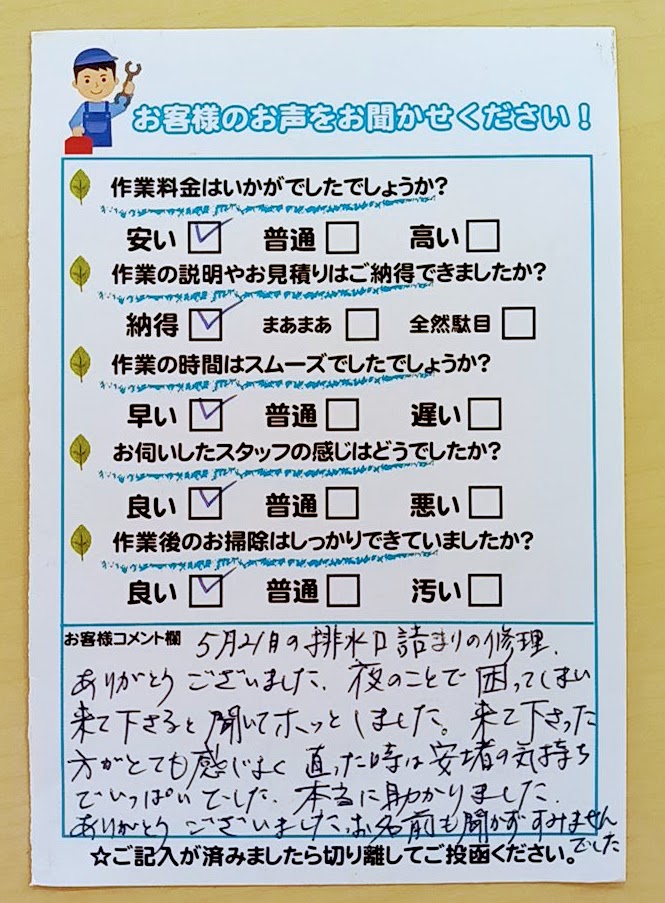 お客様のお声をお聞かせください！
作業料金はいかがでしたでしょうか？
安い 普通 高い
作業の説明やお見積りはご納得できましたか？
納得 まあまあ 全然駄目
作業の時間はスムーズでしたでしょうか？
早い 普通 遅い
お伺いしたスタッフの感じはどうでしたか？
良い 普通 悪い
作業後のお掃除はしっかりできていましたか？
良い 普通 汚い
お客様コメント欄 5月21日の排水口詰まりの修理、
ありがとうございました。夜のことで困ってしまい
来て下さると聞いてホッとしました。来て下さった
方がとても感じよく直った時は安堵の気持ち
でいっぱいでした。本当に助かりました。
ありがとうございました。お名前も聞かずすみません
でした
☆ご記入が済みましたら切り離してご投函ください。